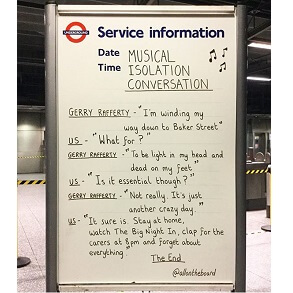 UNDERGROUND
Service information
Date MUSICAL
Time ISOLATION
CONVERSATION
GERRY RAFFERTY - "I'm winding my
way down to Baker Street"
US - "What for?"
GERRY RAFFERTY - "To be light in my head and
dead on my feet"
US - "Is it essential though?"
GERRY RAFFERTY - "Not really. It's just
another crazy day"
US - "It sure is. Stay at home,
watch The Big Night In, clap for the
carers at 8pm and forget about
everything"
The End
@allontheboard